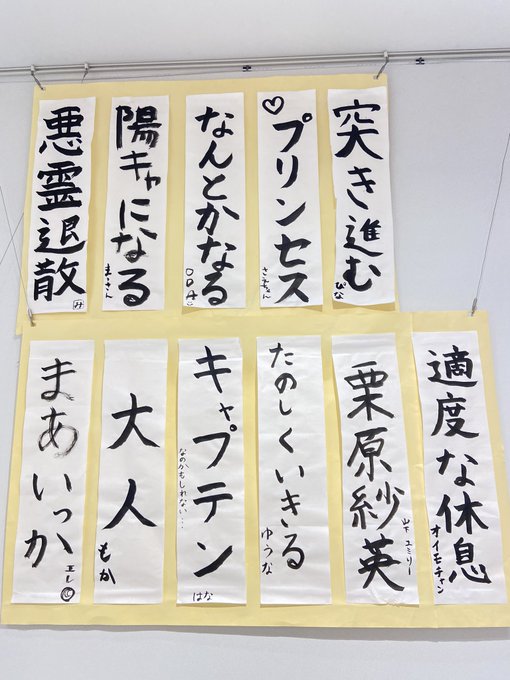 突き進む
ぴな
♡プリンセス
さぁちゃん
なんとかなる
ODA
陽キャになる
まぁさん
悪霊退散
み
適度な休息
オイモチャン
栗原紗英
山下エミリー
たのしくいきる
ゆうな
キャプテン
なのかもしれない…
はな
大人
もか
まあいっか